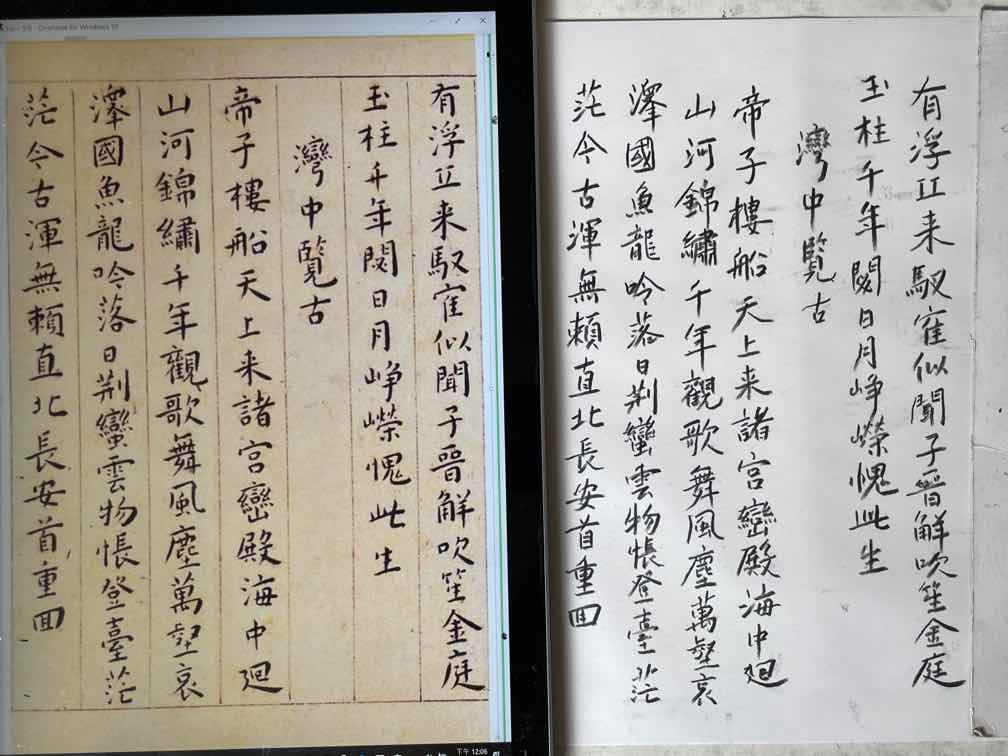 OneNote for Windows 10
有浮丘来馭寉似聞子晉解吹笙金庭
玉柱千年閟日月崢嶸愧此生
灣中覽古
帝子樓船天上来諸宮巒殿海中廻
山河錦繡千年觀歌舞風塵萬壑哀
澤國魚龍吟落日荆蠻雲物悵登臺茫
茫今古渾無賴直北長安首重回
下午 12:06
有浮丘来馭寉似聞子晉解吹笙金庭
玉柱千年閟日月崢嶸愧此生
灣中覽古
帝子樓船天上来諸宮巒殿海中廻
山河錦繡千年觀歌舞風塵萬壑哀
澤國魚龍吟落日荆蠻雲物悵登臺茫
茫今古渾無賴直北長安首重回